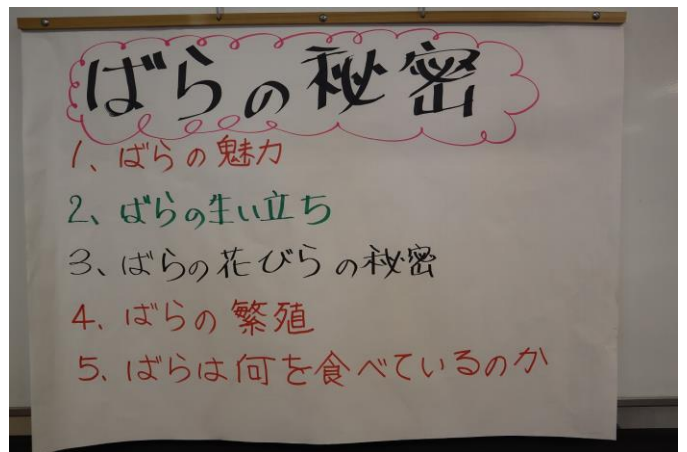 ばらの秘密
1、ばらの魅力
2、ばらの生い立ち
3、ばらの花びらの秘密
4、ばらの繁殖
5、ばらは何を食べているのか